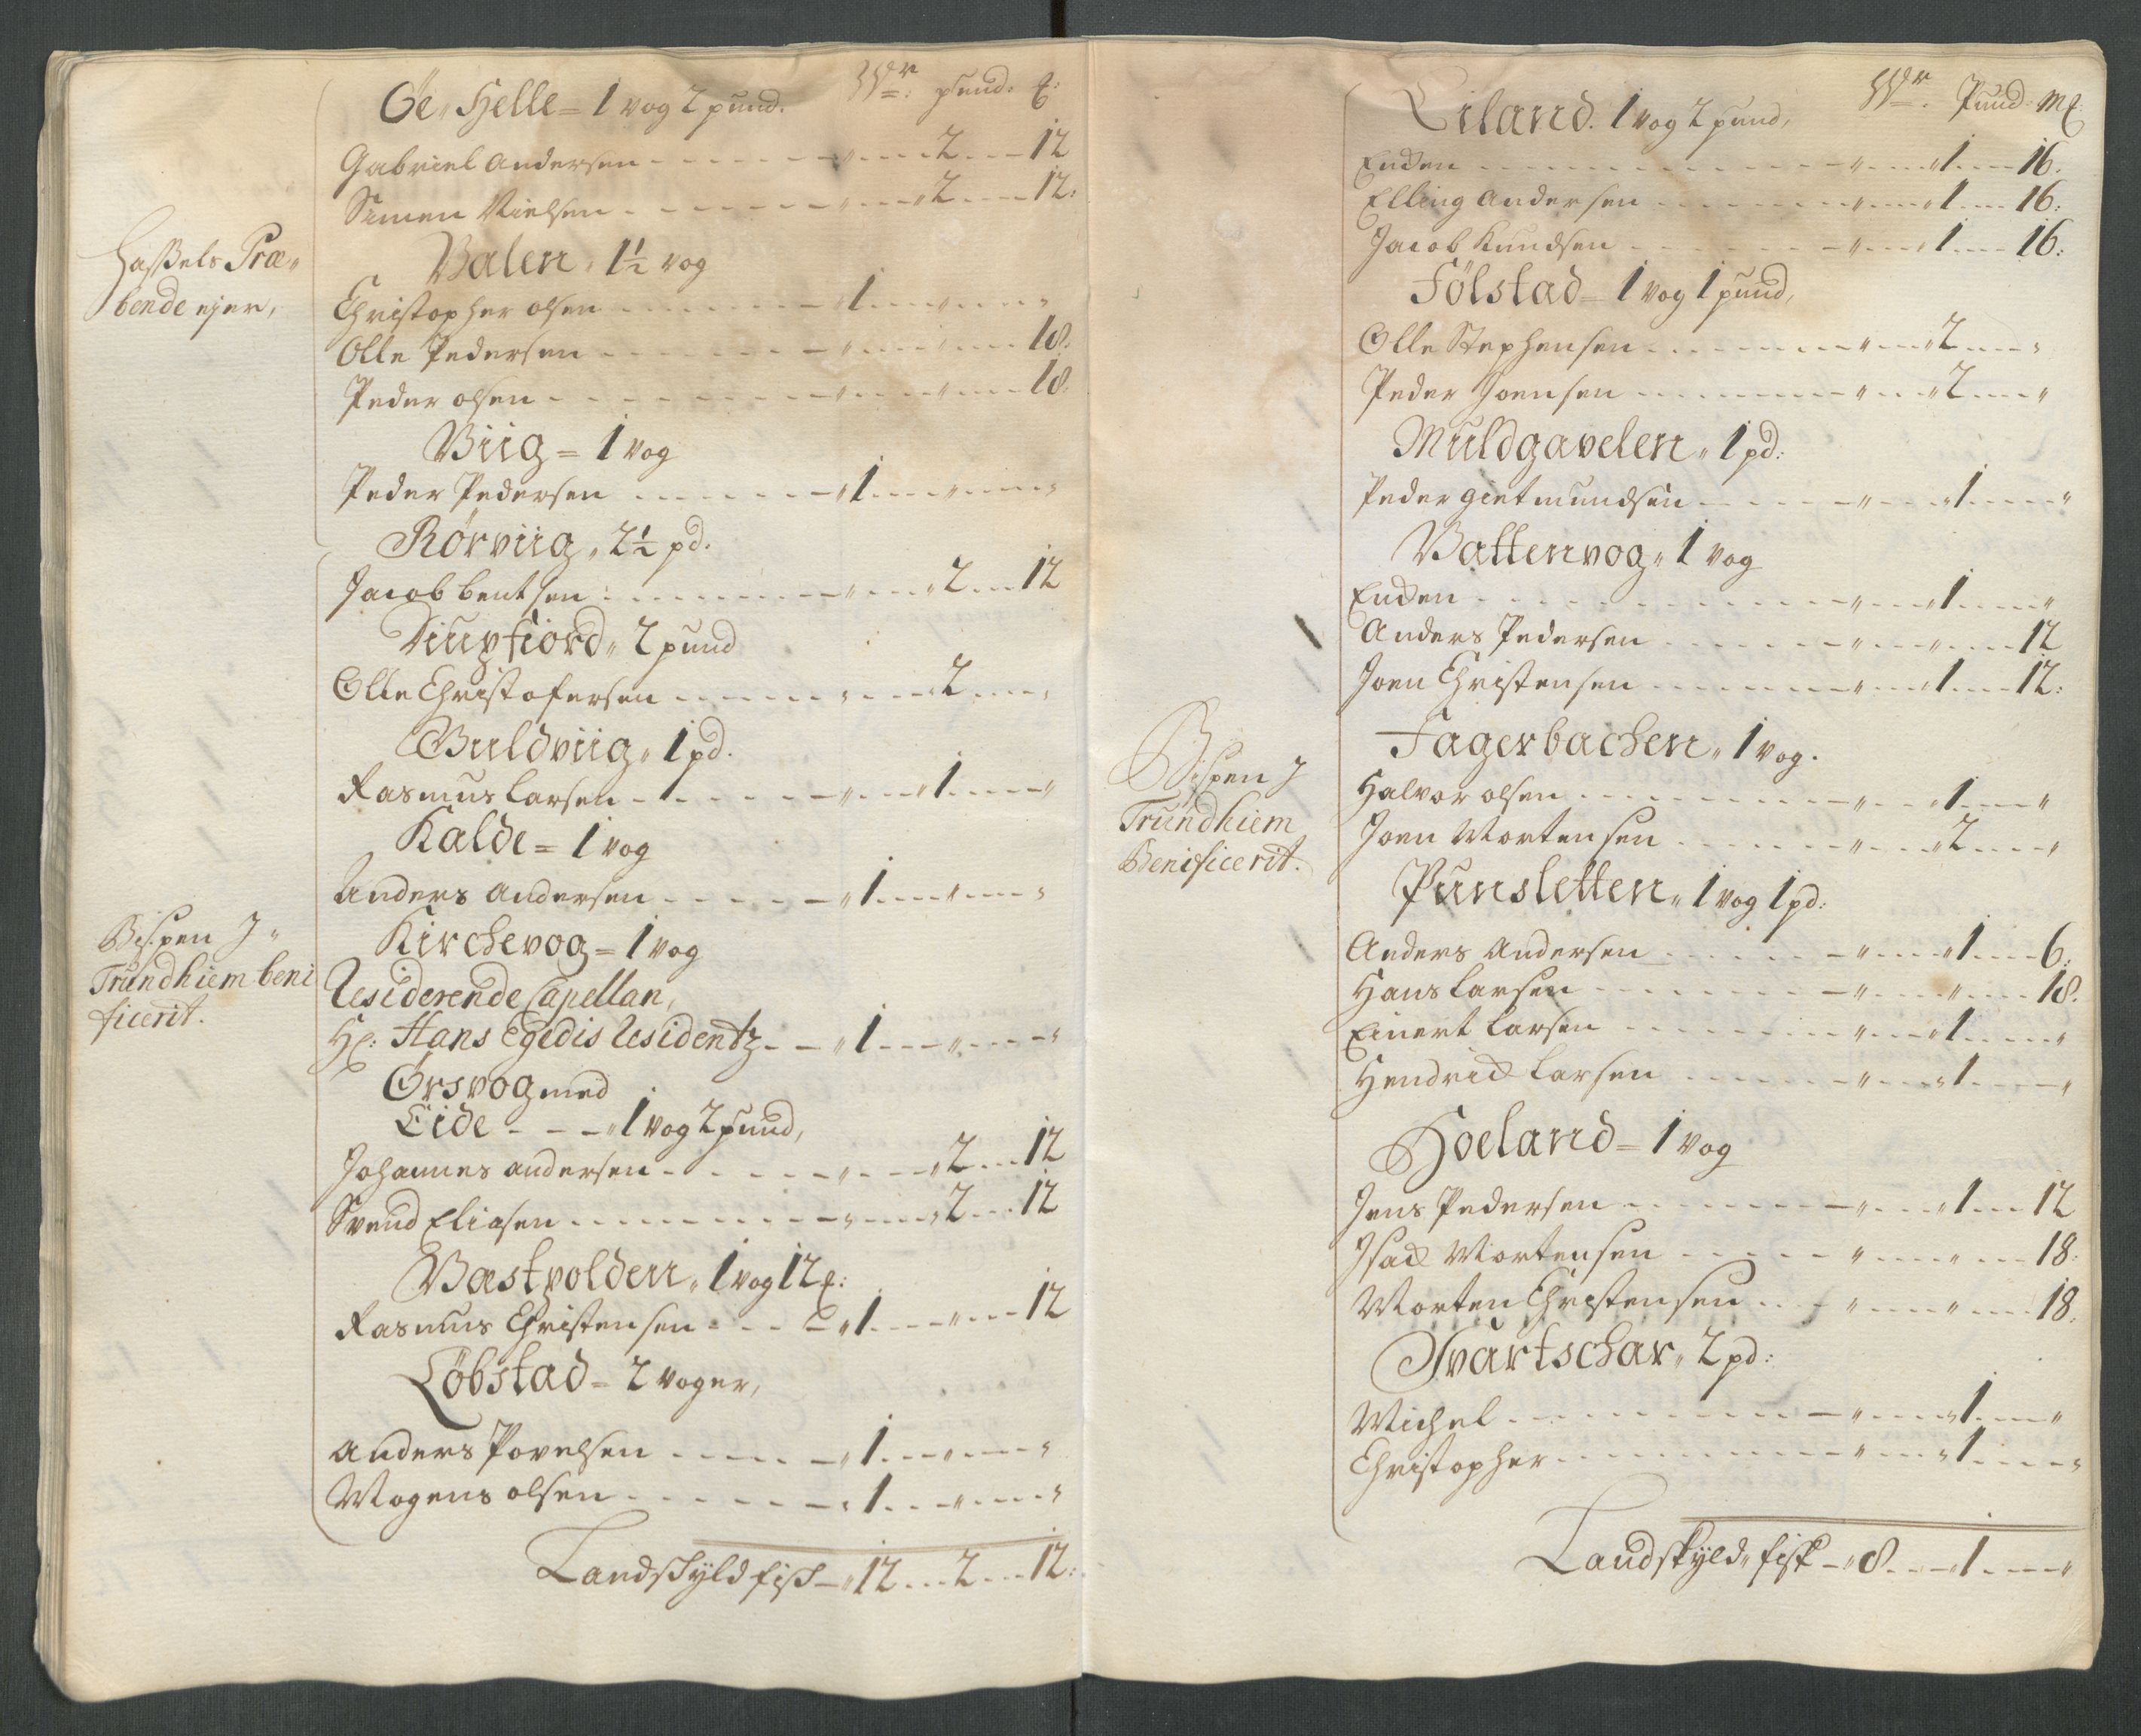 Öe „ Hielle = 1 vog 2 pund. W:r pund: ℔:
Gabriel Andersen „ 2 12
Simen Nielsen „ 2 12:
Hassels Præ„
bende ejer,
Valen „ 1½ vog
Christopher olsen 1 „ „
Olle Pedersen „ „ 18.
Peder olsen „ „ 18.
Viig = 1 vog
Peder Pedersen 1 „ „
Rørviig „ 2½ pd.
Jacob bentsen „ 2 12
Diupfiord „ 2 pund
Olle Christofersen „ 2 „
Guldviig „ 1 pd.
Rasmus Larsen „ 1 „
Kalde = 1 vog
Anders Andersen 1 „ „
Bispen J „
Trundhiem beni
ficerit.
Kirchevog = 1 vog
Residerende Capellan,
Hr: Hans Egedis Residentz 1 „ „
Ørsvog med
Eide „ 1 vog 2 pund,
Johannes andersen „ 2 12
Svend Eliasen „ 2 12
Vastvolden „ 1 vog 12 ℔:
Rasmus Christensen 1 „ 12
Löbstad = 2 voger,
Anders Povelsen 1 „ „
Mogens olsen 1 „ „
Landskyld fisk 12 2 12:
Eiland. 1 vog 2 pund, W:r Pund: M℔
Encken „ 1 16.
Elling Andersen „ 1 16:
Jacob Knudsen „ 1 16:
Fölstad = 1 vog 1 pund,
Olle Stephensen „ 2 „
Peder Joensen „ 2 „
Muldgavelen „ 1 pd:
Peder gietmundsen „ 1 „
Vattenvog „ 1 vog
Encken „ 1 „
Anders Pedersen „ „ 12
Joen Christensen „ 1 12:
Bispen J
Trundhiem
Benificerit.
Fagerbachen „ 1 vog.
Halvor olsen „ 1 „
Joen Mortensen „ 2 „
Punsletten „ 1 vog 1 pd:
Anders Andersen „ 1 6:
Hans Larsen „ „ 18.
Einert Larsen „ 1 „
Hendrick Larsen „ 1 „
Hoeland = 1 vog
Jens Pedersen „ 1 12
Isack Mortensen „ „ 18:
Morten Christensen „ „ 18.
Svartschar „ 2 pd:
Michel „ 1 „
Christopher „ 1 „
Landskyld „ fisk 8 1 „